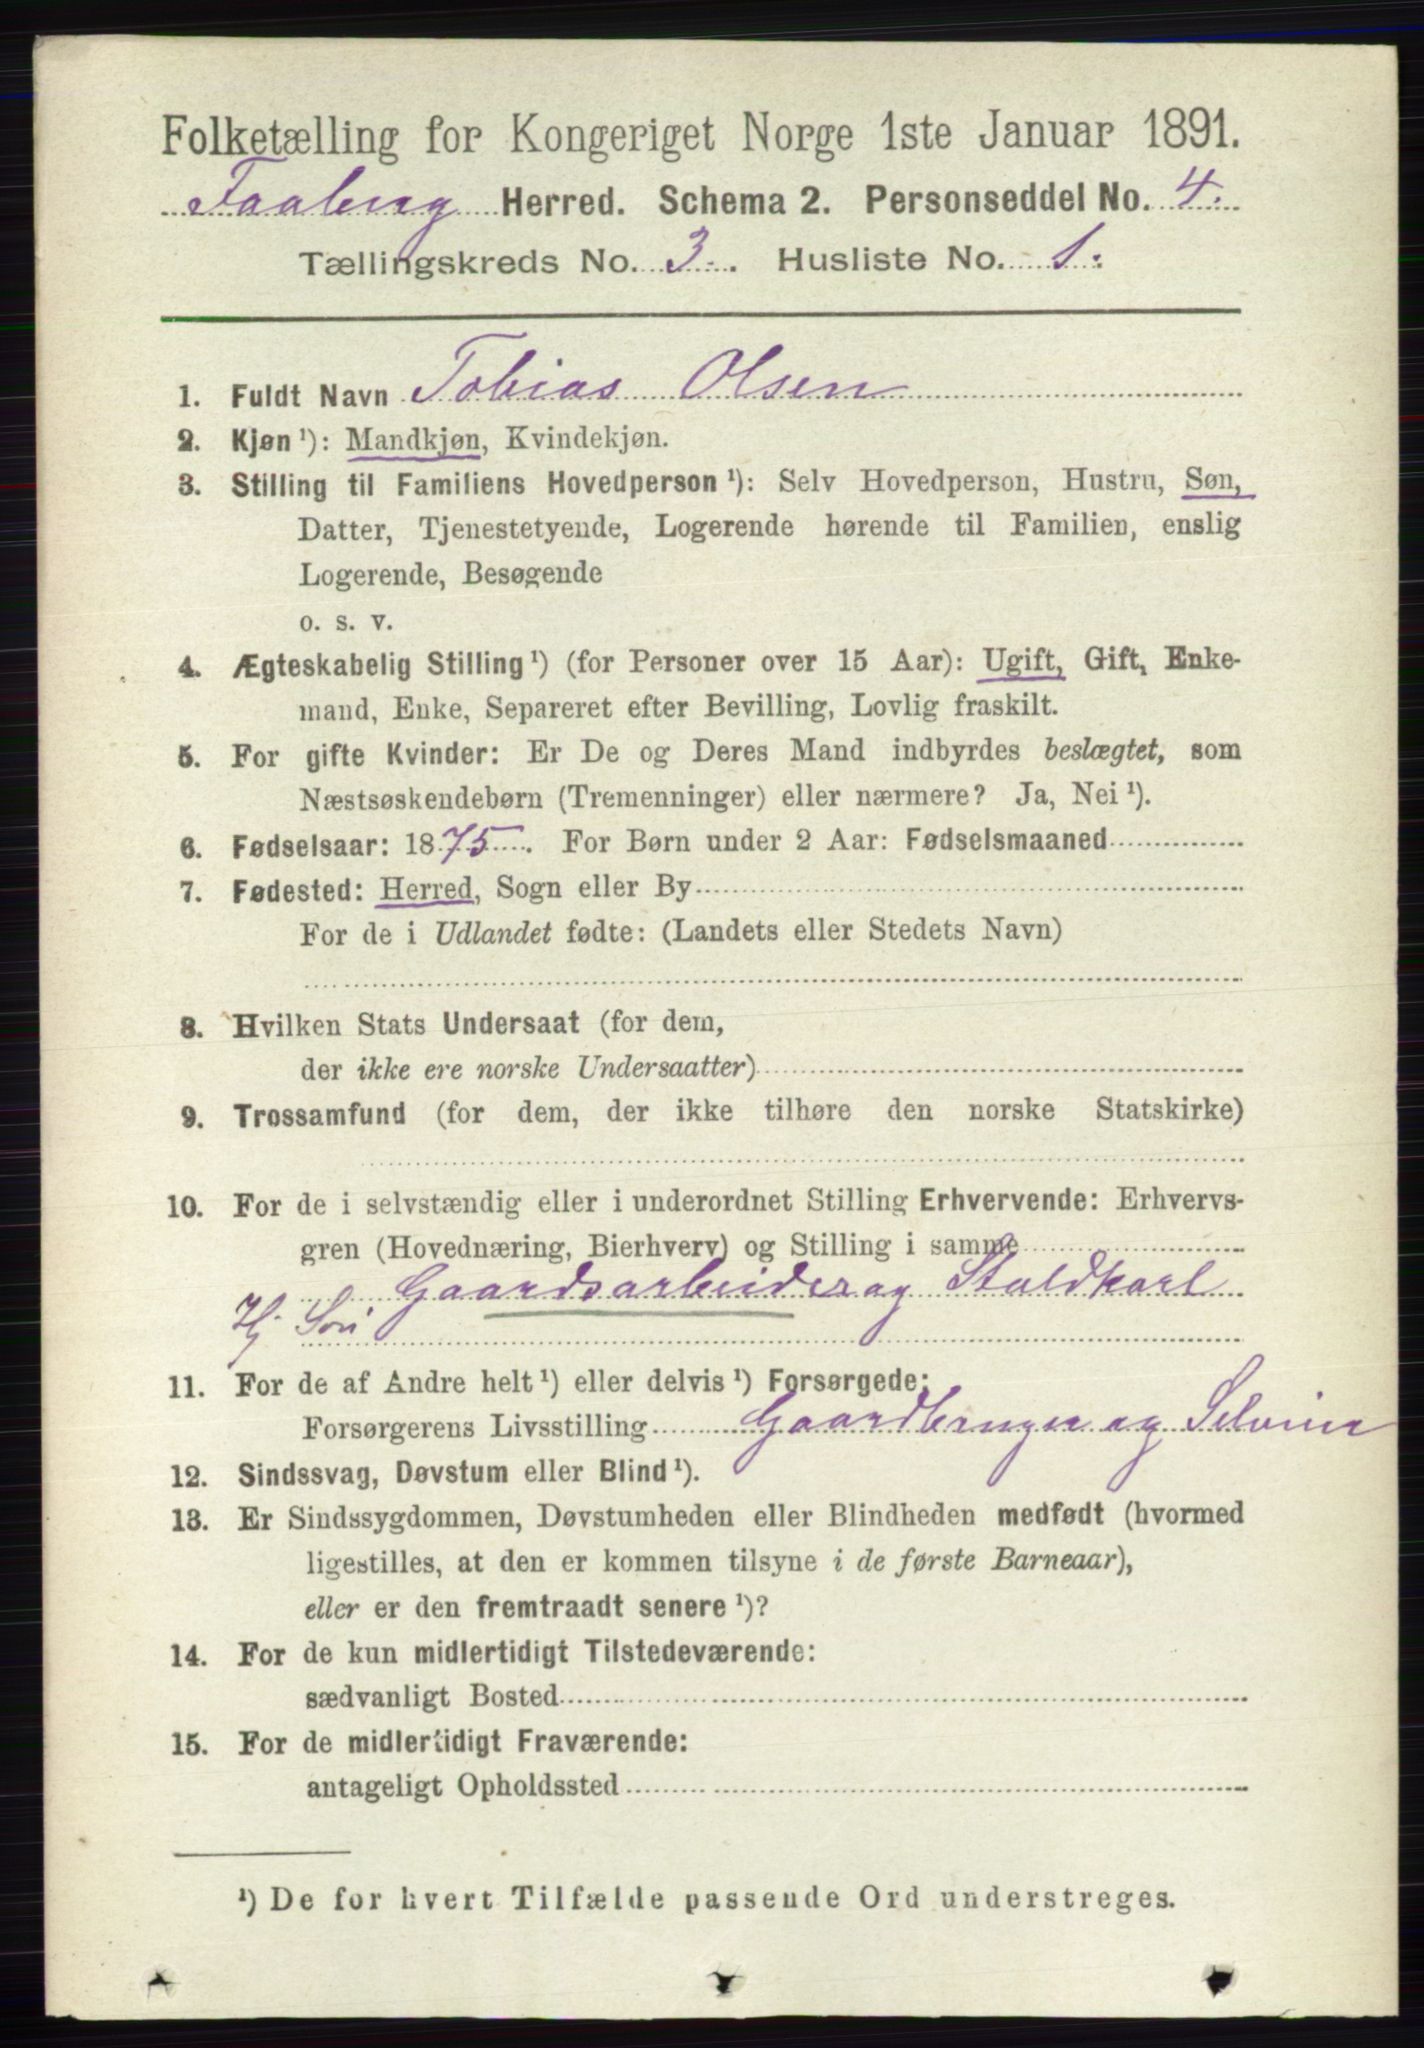 Folketælling for Kongeriget Norge 1ste Januar 1891.
Faaberg Herred. Schema 2. Personseddel No. 4.
Tællingskreds No. 3. Husliste No. 1.
1. Fuldt Navn Tobias Olsen
2. Kjøn ¹): Mandkjøn, Kvindekjøn.
3. Stilling til Familiens Hovedperson ¹): Selv Hovedperson, Hustru, Søn,
Datter, Tjenestetyende, Logerende hørende til Familien, enslig
Logerende, Besøgende
o. s. v.
4. Ægteskabelig Stilling ¹) (for Personer over 15 Aar): Ugift, Gift, Enke-
mand, Enke, Separeret efter Bevilling, Lovlig fraskilt.
5. For gifte Kvinder: Er De og Deres Mand indbyrdes beslægtet, som
Næstsøskendebørn (Tremenninger) eller nærmere? Ja, Nei ¹).
6. Fødselsaar: 1875. For Børn under 2 Aar: Fødselsmaaned
7. Fødested: Herred, Sogn eller By
For de i Udlandet fødte: (Landets eller Stedets Navn)
8. Hvilken Stats Undersaat (for dem,
der ikke ere norske Undersaatter)
9. Trossamfund (for dem, der ikke tilhøre den norske Statskirke)
10. For de i selvstændig eller i underordnet Stilling Erhvervende: Erhvervs-
gren (Hovednæring, Bierhverv) og Stilling i samme
Gaardsarbeider og Staldkarl
Hj. Søn
11. For de af Andre helt ¹) eller delvis ¹) Forsørgede:
Forsørgerens Livsstilling Gaardbruger og Selveier
12. Sindssvag, Døvstum eller Blind ¹).
13. Er Sindssygdommen, Døvstumheden eller Blindheden medfødt (hvormed
ligestilles, at den er kommen tilsyne i de første Barneaar),
eller er den fremtraadt senere ¹)?
14. For de kun midlertidigt Tilstedeværende:
sædvanligt Bosted
15. For de midlertidigt Fraværende:
antageligt Opholdssted
¹) De for hvert Tilfælde passende Ord understreges.